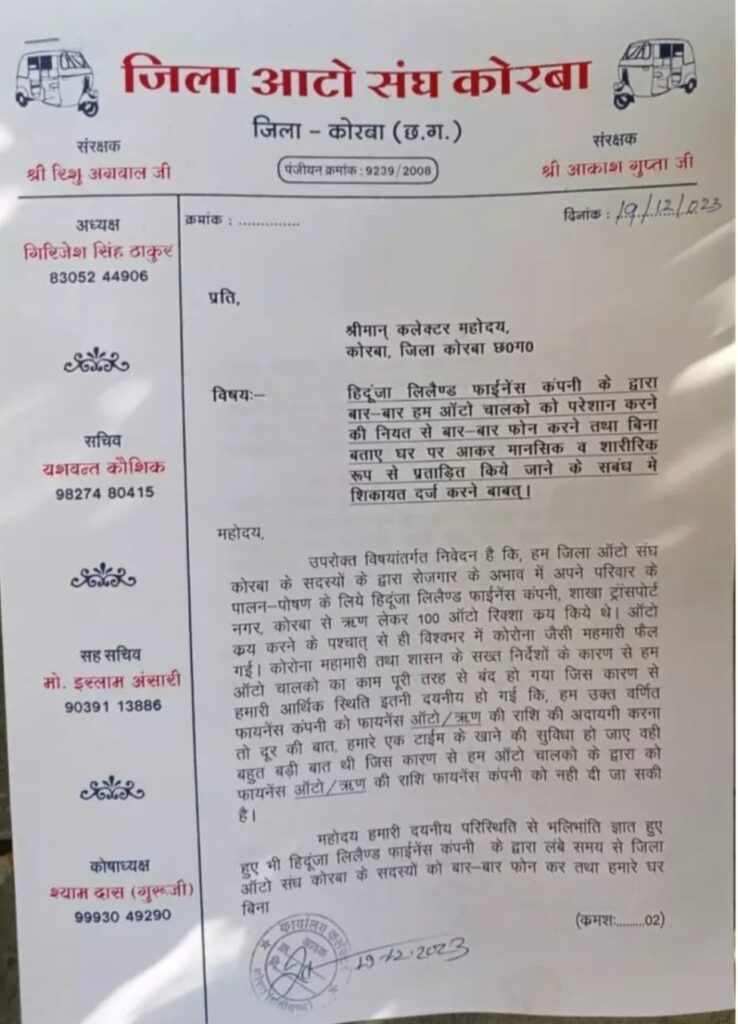 जिला आटो संघ कोरबा
जिला - कोरबा (छ.ग.)
पंजीयन क्रमांक : 9239/2008
संरक्षक
श्री रिशु अग्रवाल जी
संरक्षक
श्री आकाश गुप्ता जी
अध्यक्ष
गिरिजेश सिंह ठाकुर
83052 44906
सचिव
यशवन्त कौशिक
98274 80415
सह सचिव
मो. इस्लाम अंसारी
90391 13886
कोषाध्यक्ष
श्याम दास (गुरूजी)
99930 49290
क्रमांक : ..............
दिनांक : 19/12/2023
प्रति,
श्रीमान् कलेक्टर महोदय,
कोरबा, जिला कोरबा छ0ग0
विषयः– हिदूंजा लिलैण्ड फाईनेंस कंपनी के द्वारा
बार–बार हम ऑटो चालको को परेशान करने
की नियत से बार–बार फोन करने तथा बिना
बताए घर पर आकर मानसिक व शारीरिक
रूप से प्रताड़ित किये जाने के सबंध मे
शिकायत दर्ज करने बाबत्।
महोदय,
उपरोक्त विषयांतर्गत निवेदन है कि, हम जिला ऑटो संघ
कोरबा के सदस्यों के द्वारा रोजगार के अभाव में अपने परिवार के
पालन–पोषण के लिये हिदूंजा लिलैण्ड फाईनेंस कंपनी, शाखा ट्रांसपोर्ट
नगर, कोरबा से ऋण लेकर 100 ऑटो रिक्शा कय किये थे। ऑटो
कय करने के पश्चात् से ही विश्वभर में कोरोना जैसी महमारी फैल
गई। कोरोना महामारी तथा शासन के सख्त निर्देशों के कारण से हम
ऑटो चालको का काम पूरी तरह से बंद हो गया जिस कारण से
हमारी आर्थिक स्थिति इतनी दयनीय हो गई कि, हम उक्त वर्णित
फायनेंस कंपनी को फायनेंस ऑटो/ऋण की राशि की अदायगी करना
तो दूर की बात, हमारे एक टाईम के खाने की सुविधा हो जाए वही
बहुत बड़ी बात थी जिस कारण से हम ऑटो चालको के द्वारा को
फायनेंस ऑटो/ऋण की राशि फायनेंस कंपनी को नही दी जा सकी
है।
महोदय हमारी दयनीय परिस्थिति से भलिभांति ज्ञात हुए
हुए भी हिदूंजा लिलैण्ड फाईनेंस कंपनी के द्वारा लंबे समय से जिला
ऑटो संघ कोरबा के सदस्यों को बार–बार फोन कर तथा हमारे घर
बिना
(कमशः........02)
कार्यालय
आवक
19-12-2023